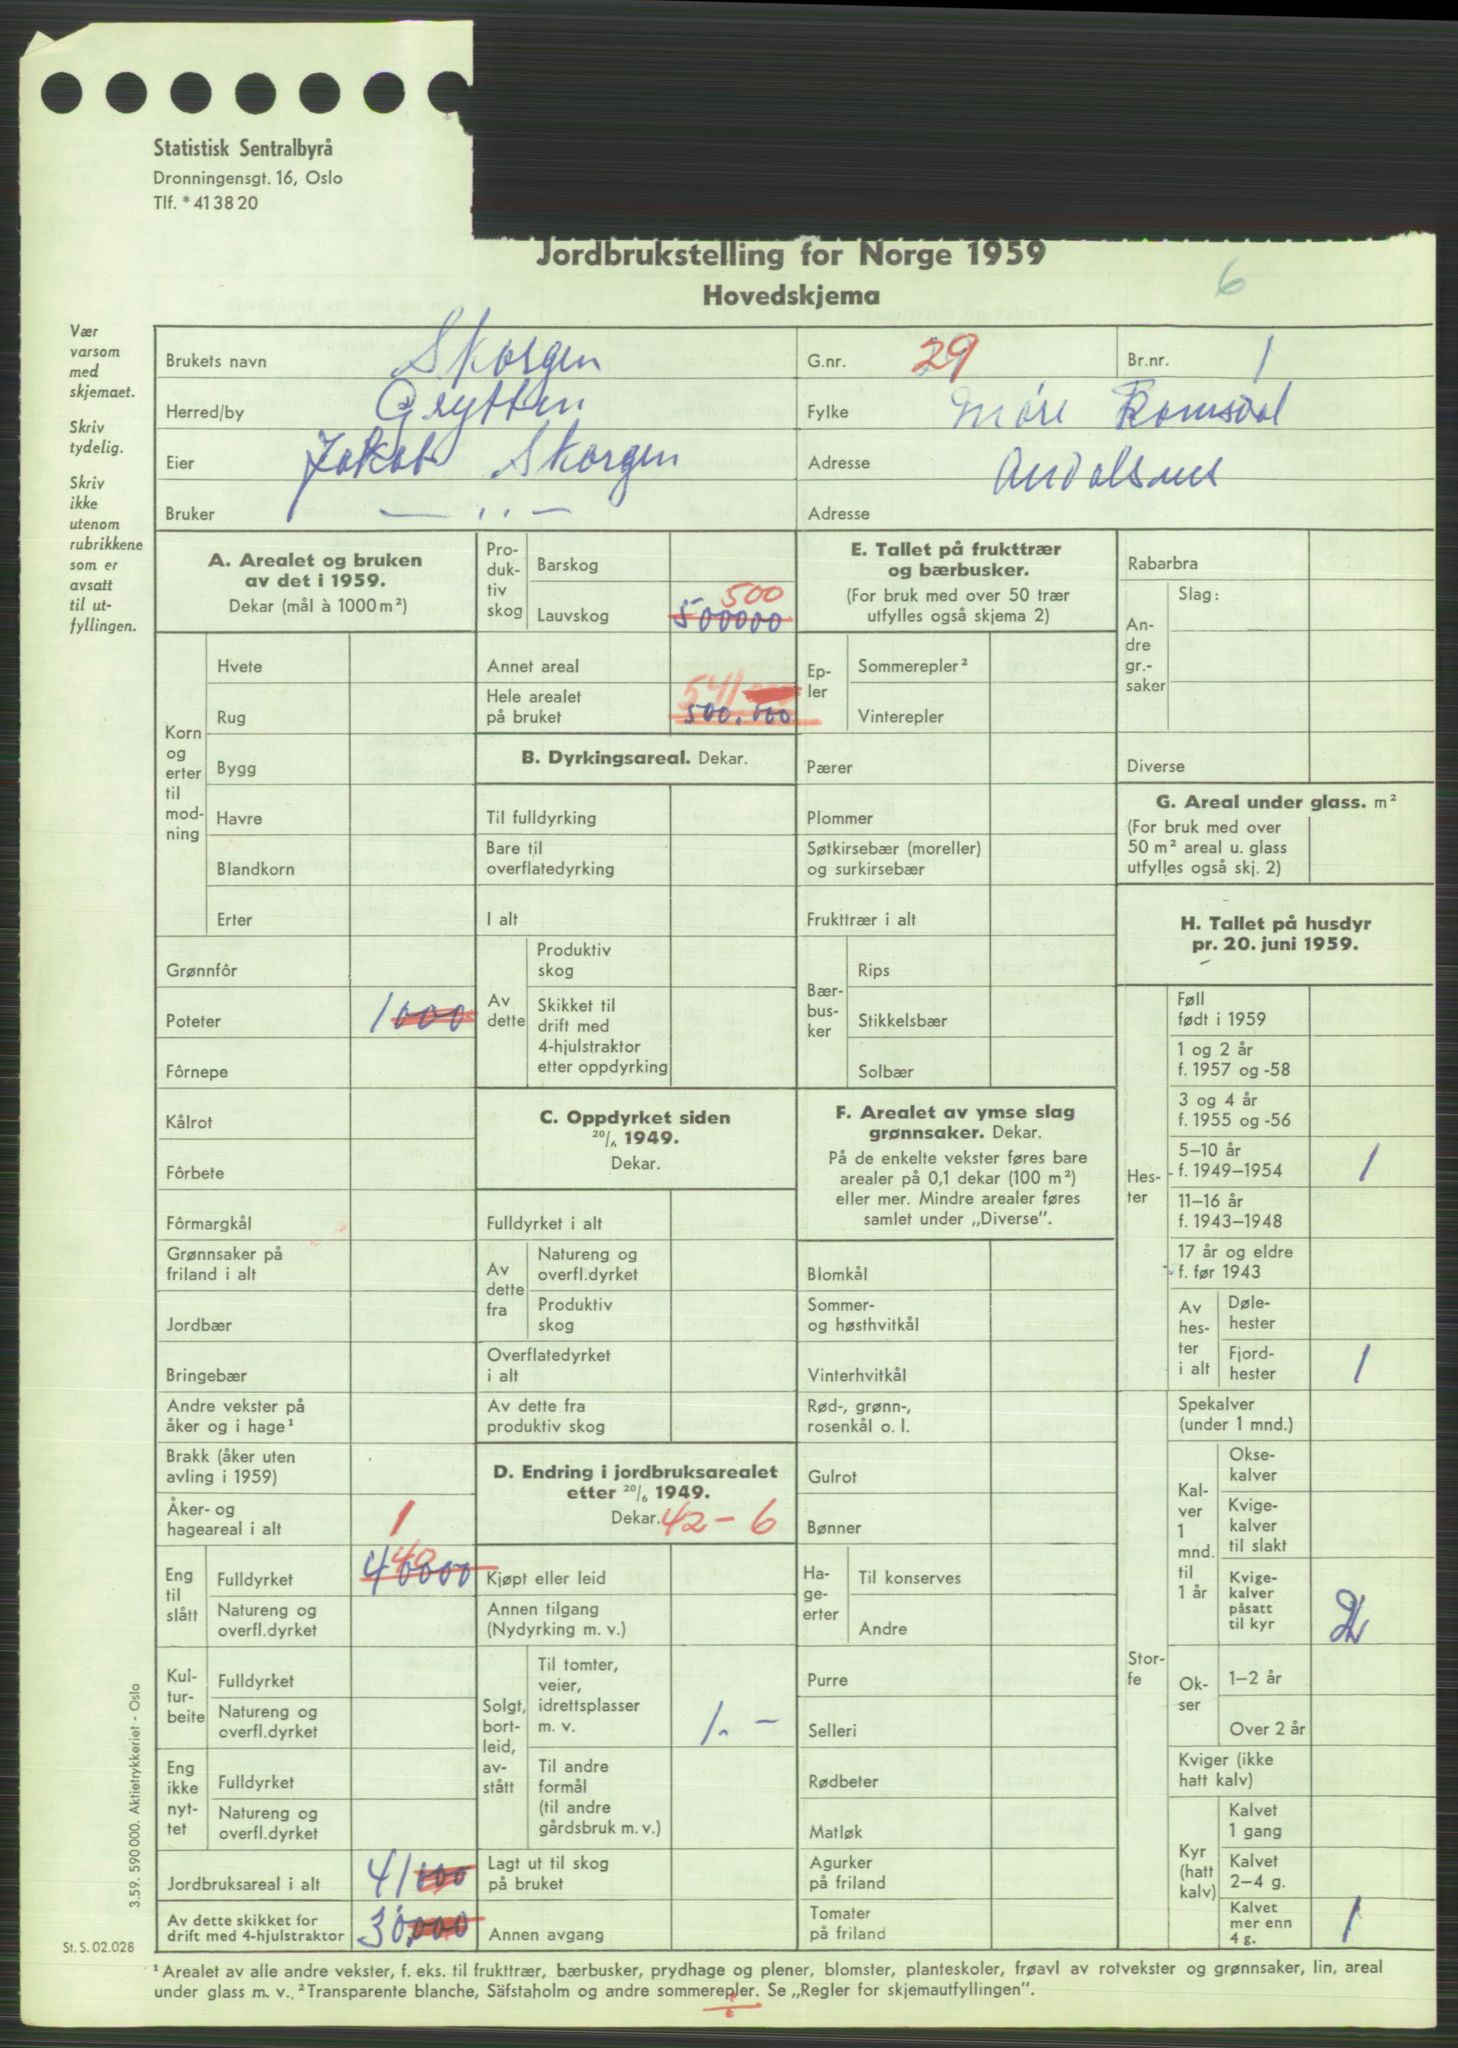 Statistisk Sentralbyrå
Dronningensgt. 16, Oslo
Tlf. * 41 38 20
Jordbrukstelling for Norge 1959
Hovedskjema
6
Vær varsom med skjemaet.
Skriv tydelig.
Skriv ikke utenom rubrikkene som er avsatt til ut-fyllingen.
Brukets navn Skorgen G.nr. 29 Br.nr. 1
Herred/by Grytten Fylke Møre Romsdal
Eier Jakob Skorgen Adresse Andalsnes
Bruker — ,, — Adresse
A. Arealet og bruken av det i 1959.
Dekar (mål à 1000 m²)
Korn og erter til mod-ning
Hvete
Rug
Bygg
Havre
Blandkorn
Erter
Grønnfôr
Poteter 1000
Fôrnepe
Kålrot
Fôrbete
Fôrmargkål
Grønnsaker på friland i alt
Jordbær
Bringebær
Andre vekster på åker og i hage¹
Brakk (åker uten avling i 1959)
Åker- og hageareal i alt 1
Eng til slått
Fulldyrket 40 40000
Natureng og overfl.dyrket
Kul-tur-beite
Fulldyrket
Natureng og overfl.dyrket
Eng ikke nyt-tet
Fulldyrket
Natureng og overfl.dyrket
Jordbruksareal i alt 41000
Av dette skikket for drift med 4-hjulstraktor 30,000
Pro-duk-tiv skog
Barskog
Lauvskog 500 500000
Annet areal
Hele arealet på bruket 541 500.000
B. Dyrkingsareal. Dekar.
Til fulldyrking
Bare til overflatedyrking
I alt
Av dette
Produktiv skog
Skikket til drift med 4-hjulstraktor etter oppdyrking
C. Oppdyrket siden 20/6 1949.
Dekar.
Fulldyrket i alt
Av dette fra
Natureng og overfl.dyrket
Produktiv skog
Overflatedyrket i alt
Av dette fra produktiv skog
D. Endring i jordbruksarealet etter 20/6 1949.
Dekar. 42 - 6
Kjøpt eller leid
Annen tilgang (Nydyrking m. v.)
Solgt, bort-leid, av-stått
Til tomter, veier, idrettsplasser m. v. 1. -
Til andre formål (til andre gårdsbruk m. v.)
Lagt ut til skog på bruket
Annen avgang
E. Tallet på frukttrær og bærbusker.
(For bruk med over 50 trær utfylles også skjema 2)
Ep-ler
Sommerepler²
Vinterepler
Pærer
Plommer
Søtkirsebær (moreller) og surkirsebær
Frukttrær i alt
Bær-bus-ker
Rips
Stikkelsbær
Solbær
F. Arealet av ymse slag grønnsaker. Dekar.
På de enkelte vekster føres bare arealer på 0,1 dekar (100 m²) eller mer. Mindre arealer føres samlet under „Diverse”.
Blomkål
Sommer- og høsthvitkål
Vinterhvitkål
Rød-, grønn-, rosenkål o. l.
Gulrot
Bønner
Ha-ge-erter
Til konserves
Andre
Purre
Selleri
Rødbeter
Matløk
Agurker på friland
Tomater på friland
Rabarbra
An-dre gr.-saker
Slag:
Diverse
G. Areal under glass. m²
(For bruk med over 50 m² areal u. glass utfylles også skj. 2)
H. Tallet på husdyr pr. 20. juni 1959.
Hes-ter
Føll født i 1959
1 og 2 år f. 1957 og -58
3 og 4 år f. 1955 og -56
5–10 år f. 1949–1954 1
11–16 år f. 1943–1948
17 år og eldre f. før 1943
Av hes-ter i alt
Døle-hester
Fjord-hester 1
Stor-fe
Spekalver (under 1 mnd.)
Kal-ver 1 mnd. til 1 år
Okse-kalver
Kvige-kalver til slakt
Kvige-kalver påsatt til kyr
Ok-ser
1–2 år
Over 2 år
Kviger (ikke hatt kalv)
Kyr (hatt kalv)
Kalvet 1 gang
Kalvet 2–4 g.
Kalvet mer enn 4 g. 1
3.59. 590 000. Aktietrykkeriet - Oslo
St. S. 02.028
¹ Arealet av alle andre vekster, f. eks. til frukttrær, bærbusker, prydhage og plener, blomster, planteskoler, frøavl av rotvekster og grønnsaker, lin, areal
under glass m. v. ² Transparente blanche, Säfstaholm og andre sommerepler. Se „Regler for skjemautfyllingen”.